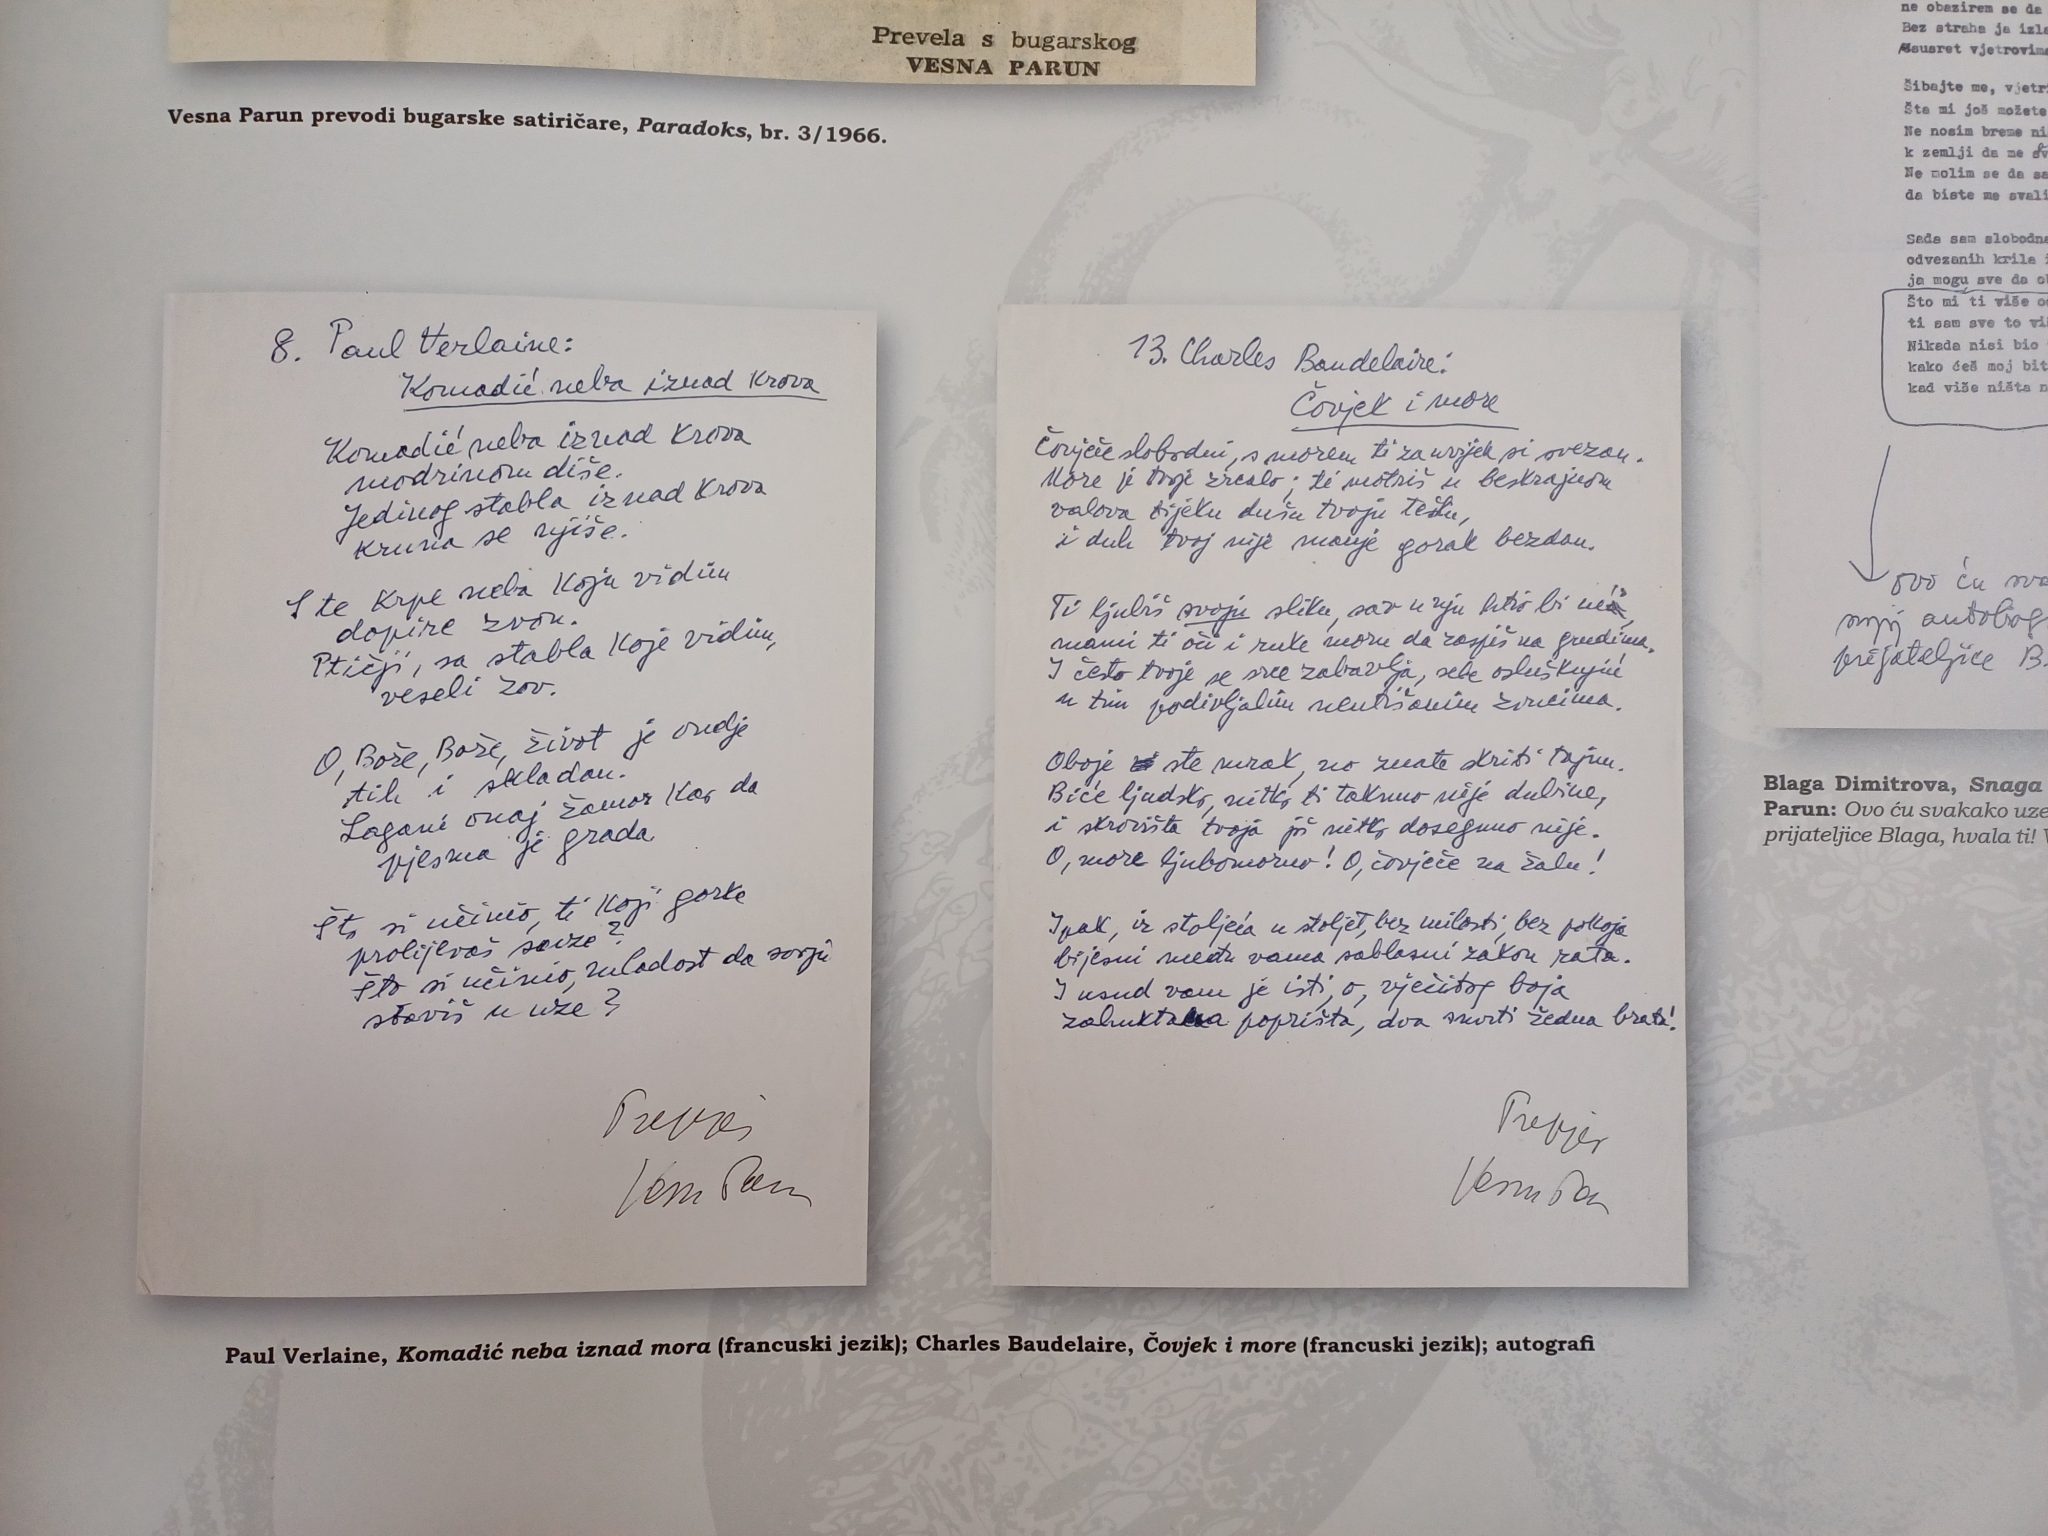 Prevela s bugarskog
VESNA PARUN
Vesna Parun prevodi bugarske satiričare, Paradoks, br. 3/1966.
8. Paul Verlaine:
Komadić neba iznad krova
Komadić neba iznad krova
modrinom diše.
Jedinog stabla iznad krova
kruna se njiše.
S te krpe neba koju vidim
dopire zvon.
Ptičji, sa stabla koje vidim,
veseli zov.
O, Bože, Bože, život je ondje
tih i skladan.
Lagani onaj žamor kao da
pjesma je grada
Što si učinio, ti koji gorke
prolijevaš suze?
Što si učinio, mladost da svoju
staviš u uze?
Prepjev
Vesna Parun
13. Charles Baudelaire:
Čovjek i more
Čovječe slobodni, s morem ti zauvijek si svezan.
More je tvoje zrcalo; ti motriš u beskrajnom
valova tijeku dušu tvoju
i duh tvoj nije manje gorak bezdan.
Ti ljubiš svoju sliku, sav u nju htio bi
mami ti oči i ruke moru da zaspiš na grudima.
I često tvoje se srce zabavlja, sebe osluškujuć
u tim podivljalim neutišanim zvucima.
Oboje ste mrak, no znate skriti tajnu.
Biće ljudsko, nitko ti taknuo nije dubine,
i skrovišta tvoja još nitko dosegnuo nije.
O, more ljubomorno! O, čovječe na žalu!
Ipak, iz stoljeća u stoljet, bez milosti, bez pokoja
bijesni među vama sablasni zakon rata.
I usud vam je isti, o, vječitog boja
zahuktala poprišta, dva smrti žedna brata!
Prepjev
Vesna Parun
Paul Verlaine, Komadić neba iznad mora (francuski jezik); Charles Baudelaire, Čovjek i more (francuski jezik); autografi
ne obazirem se da
Bez straha ja
ususret
Šibajte me,
Šta mi još možete
Ne nosim breme
k zemlji da me
Ne molim se da
da biste me
Sada sam slobodna
odvezanih krila
ja mogu sve da
Što mi ti više
ti sam sve to
Nikada nisi bio
kako ćeš moj
kad više ništa
ovo ću
prijateljice B.
Blaga Dimitrova, Snaga
Parun: Ovo ću svakako
prijateljice Blaga, hvala ti!